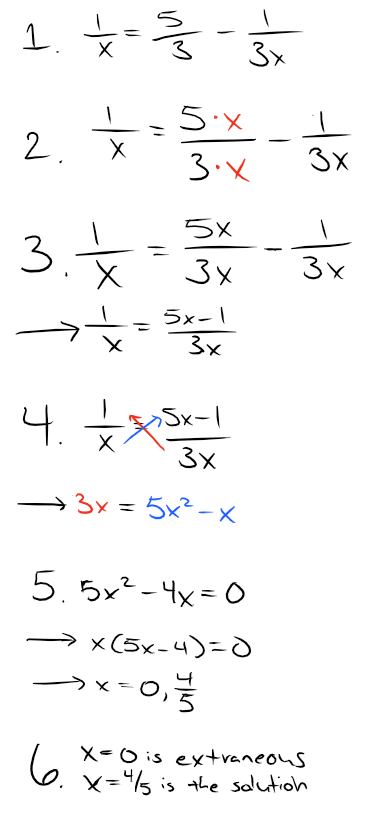 1. 1/x = 5/3 - 1/3x
2. 1/x = 5·x/3·x - 1/3x
3. 1/x = 5x/3x - 1/3x
→ 1/x = 5x-1/3x
4. 1/x = 5x-1/3x
→ 3x = 5x² - x
5. 5x² - 4x = 0
→ x(5x-4)=0
→ x = 0, 4/5
6. x=0 is extraneous
x=4/5 is the solution